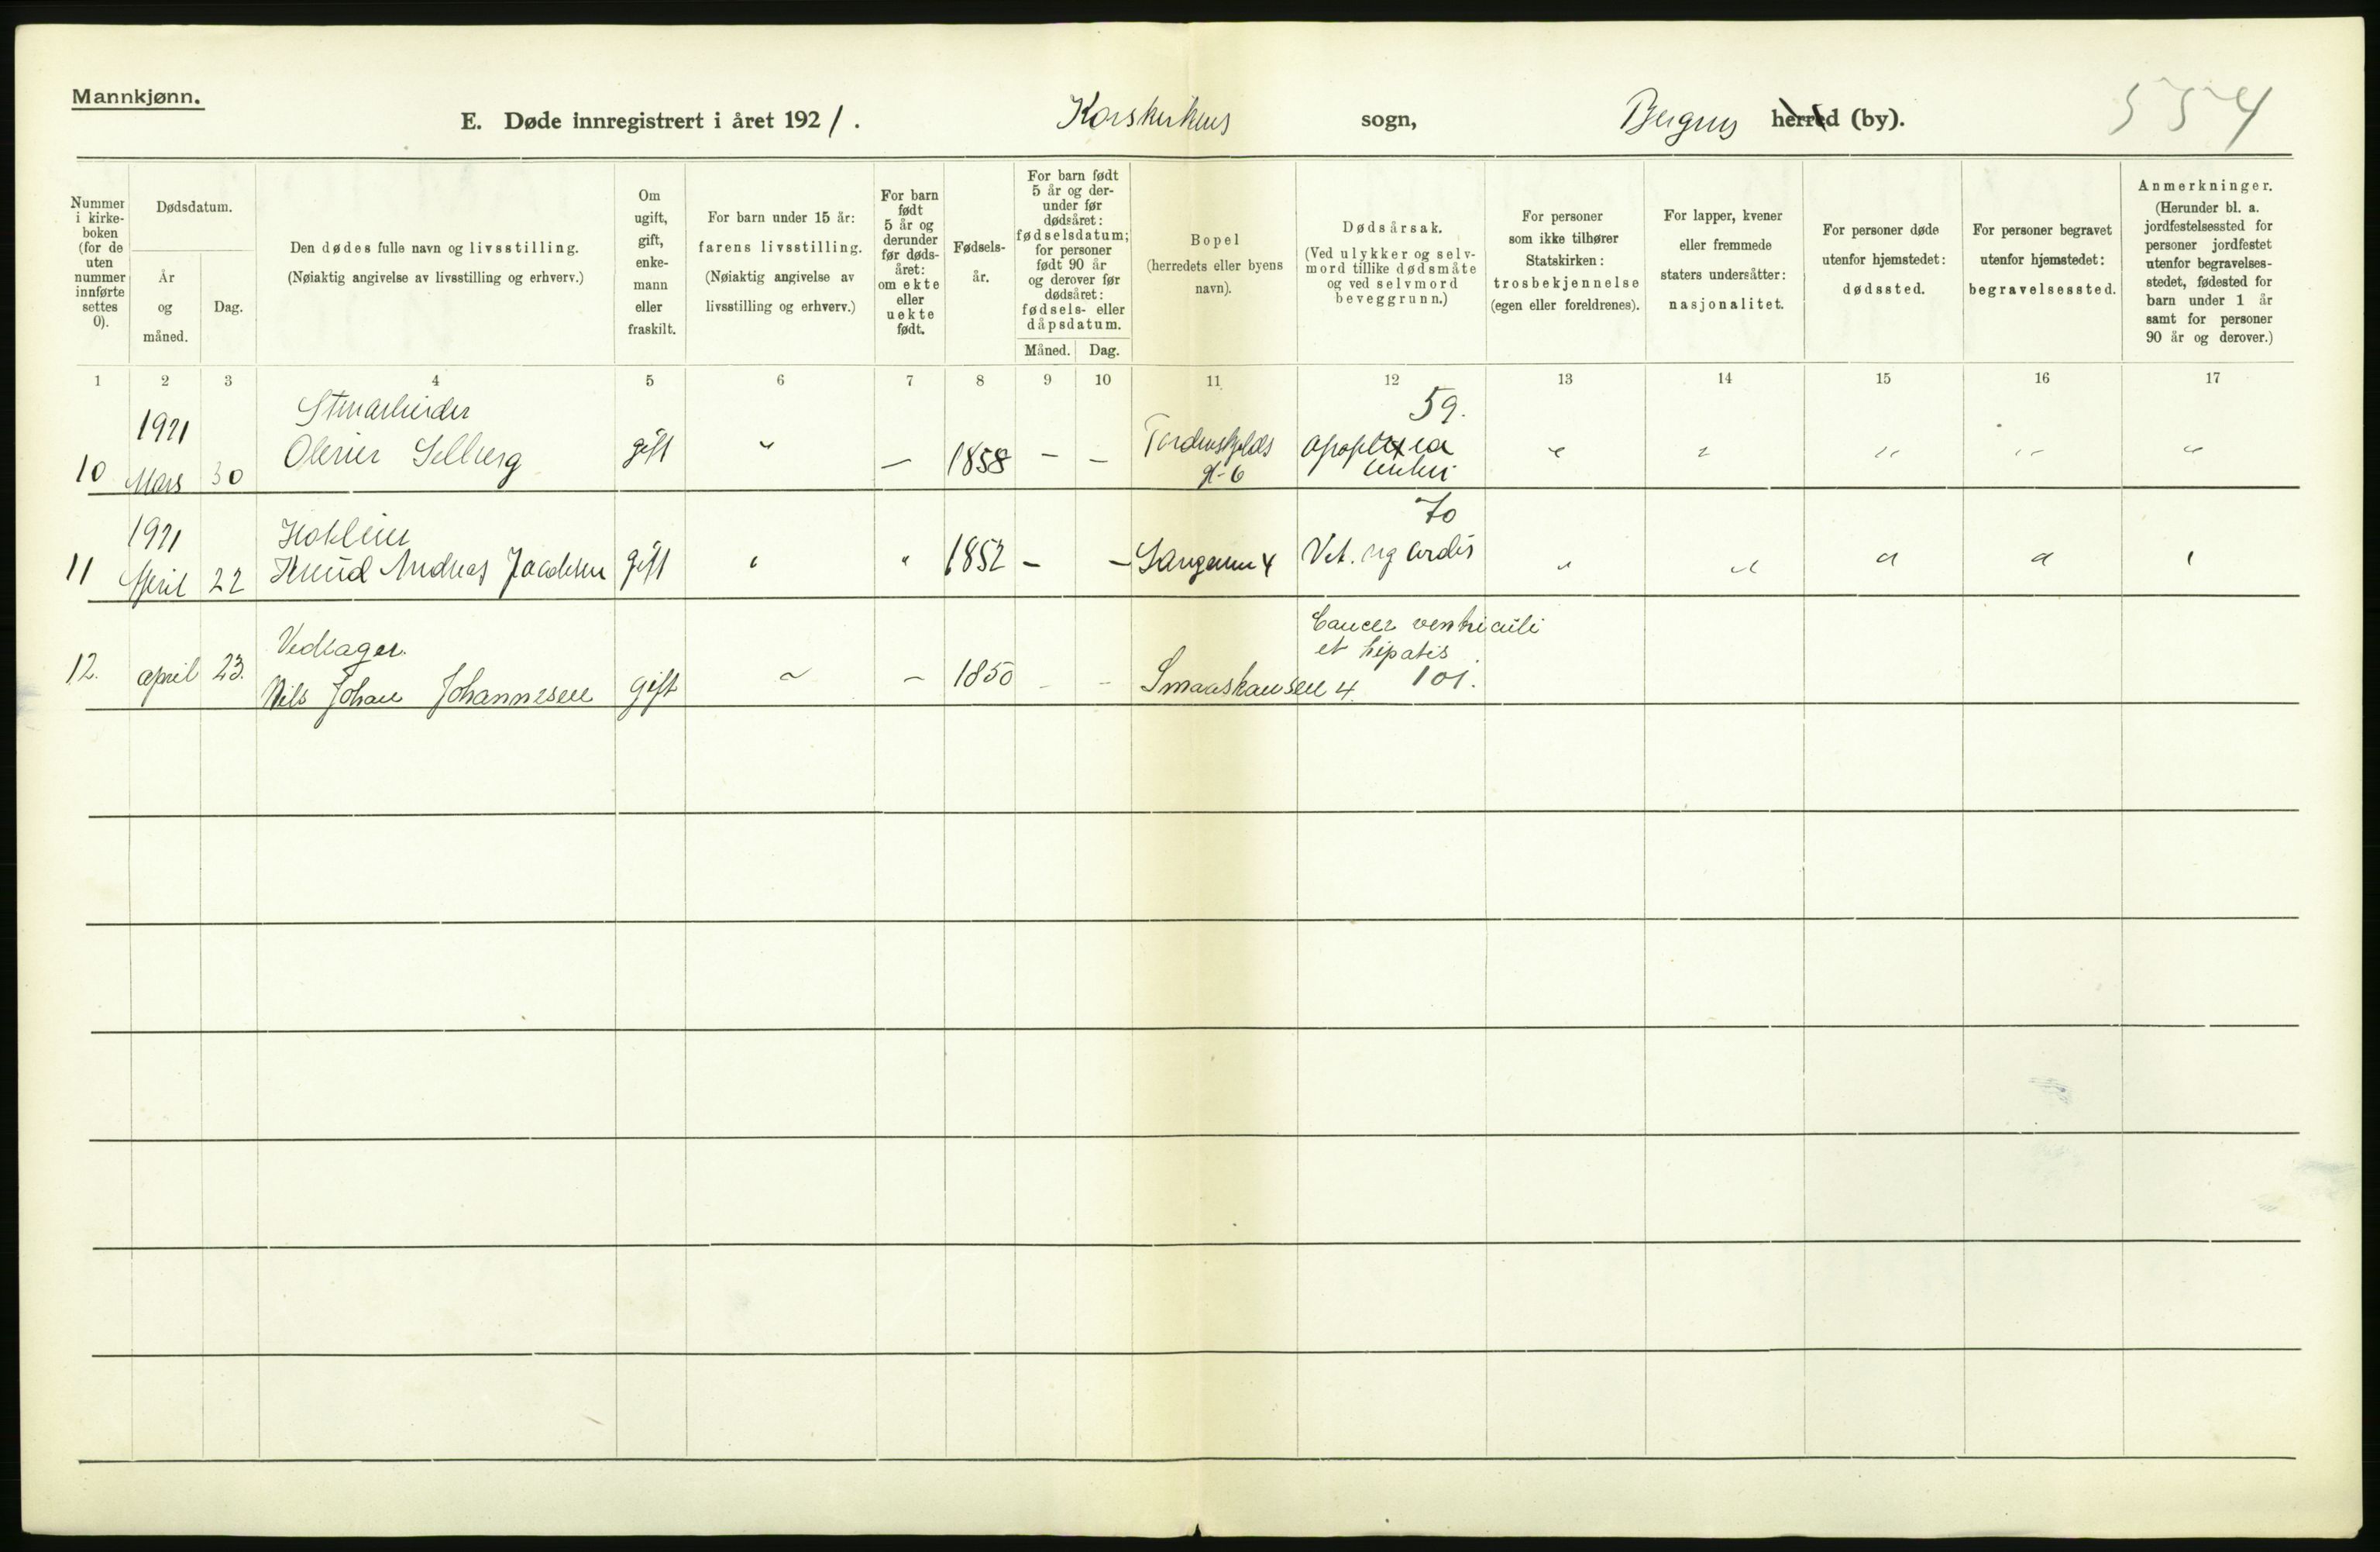 Mannkjønn.
E. Døde innregistrert i året 1921. Korskirkens sogn, Bergens herred (by). 554
Nummer i kirkeboken (for de uten nummer innførte settes 0).
Dødsdatum.
År og måned.
Dag.
Den dødes fulle navn og livsstilling.
(Nøiaktig angivelse av livsstilling og erhverv.)
Om ugift, gift, enkemann eller fraskilt.
For barn under 15 år:
farens livsstilling.
(Nøiaktig angivelse av livsstilling og erhverv.)
For barn født 5 år og derunder før dødsåret: om ekte eller uekte født.
Fødselsår.
For barn født 5 år og derunder før dødsåret: fødselsdatum; for personer født 90 år og derover før dødsåret: fødsels- eller dåpsdatum.
Måned.
Dag.
Bopel
(herredets eller byens navn).
Dødsårsak.
(Ved ulykker og selvmord tillike dødsmåte og ved selvmord beveggrunn.)
For personer som ikke tilhører Statskirken: trosbekjennelse (egen eller foreldrenes).
For lapper, kvener eller fremmede staters undersåtter: nasjonalitet.
For personer døde utenfor hjemstedet: dødssted.
For personer begravet utenfor hjemstedet: begravelsessted.
Anmerkninger.
(Herunder bl. a. jordfestelsessted for personer jordfestet utenfor begravelsesstedet, fødested for barn under 1 år samt for personer 90 år og derover.)
1 2 3 4 5 6 7 8 9 10 11 12 13 14 15 16 17
1921 Stenarbeider 59.
10 Mars 30 Olener Selberg gift " — 1858 — — Tordenskjolds gt 6 Apoplexia cerebri " " " " "
1921 70
11 April 22 Knud Andreas Jacobsen gift " " 1852 — — Langeveien 4 Vit. org cordis " " " " "
Vedtager. Cancer ventriculi
et hepatis
12. april 23. Nils Johan Johannesen gift ~ — 1850 — — Smaaskansen 4. 101.